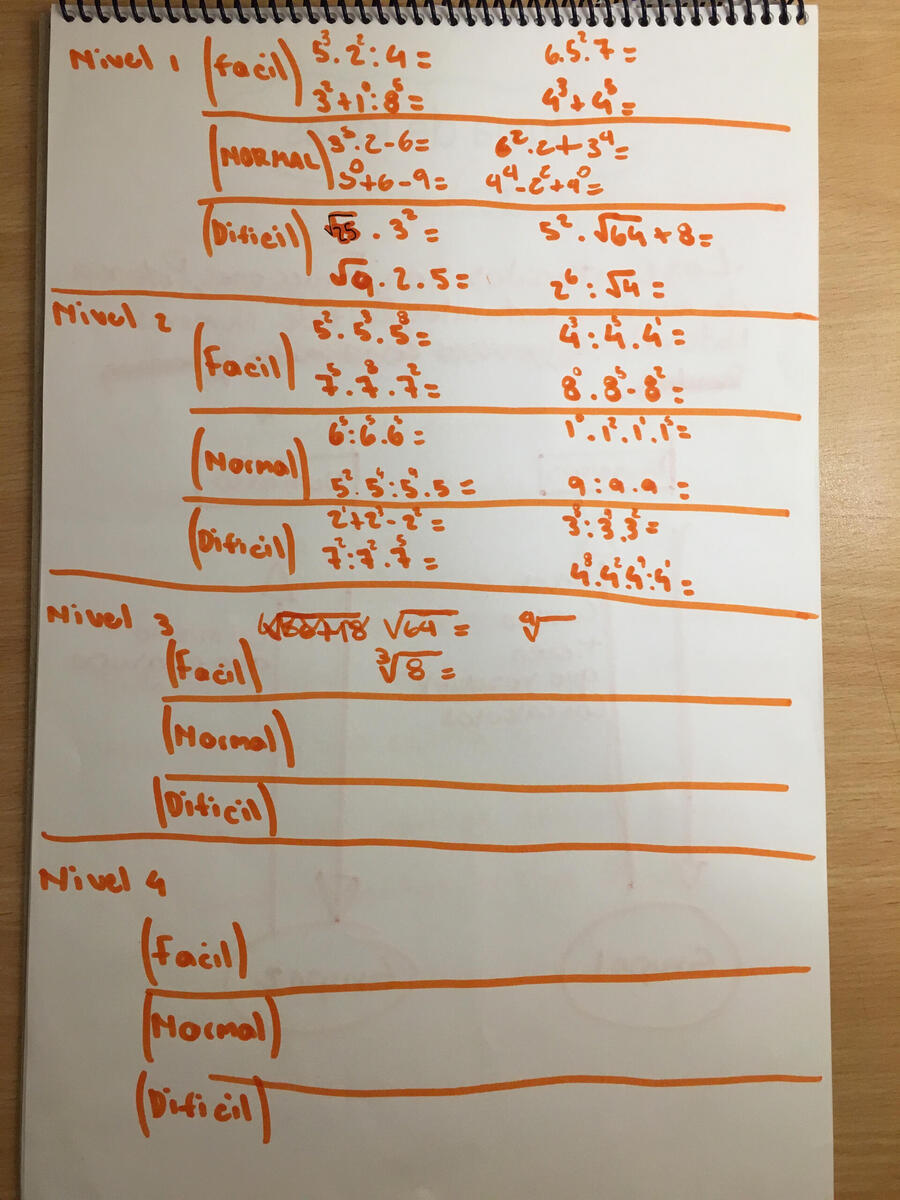 Nivel 1 (facil) 5³·2²:4= 6.5²·7=
3²+1⁰:8⁵= 4³+4⁵=
(NORMAL) 3⁵·2-6= 6²·2+3⁴=
5⁰+6-9= 4⁴-2²+9⁰=
(Dificil) √25 · 3² = 5²·√64+8=
√9·2·5= 2⁶:√4=
Nivel 2 5²·5³·5⁸= 4³:4⁵·4¹=
(Facil) 7⁵·7⁸·7²= 8⁰·8⁵-8²=
6⁵:6⁵·6⁵= 1⁰·1²·1¹·1⁵=
(Normal) 5²·5⁴:5⁹·5= 9:9·9=
2¹+2³-2²= 3⁸:3¹·3²=
(Dificil) 7²:7²·7⁵= 4⁸·4²·4¹:4¹=
Nivel 3 √64= ⁹√
(Facil) ³√8=
(Normal)
(Dificil)
Nivel 4
(Facil)
(Normal)
(Dificil)